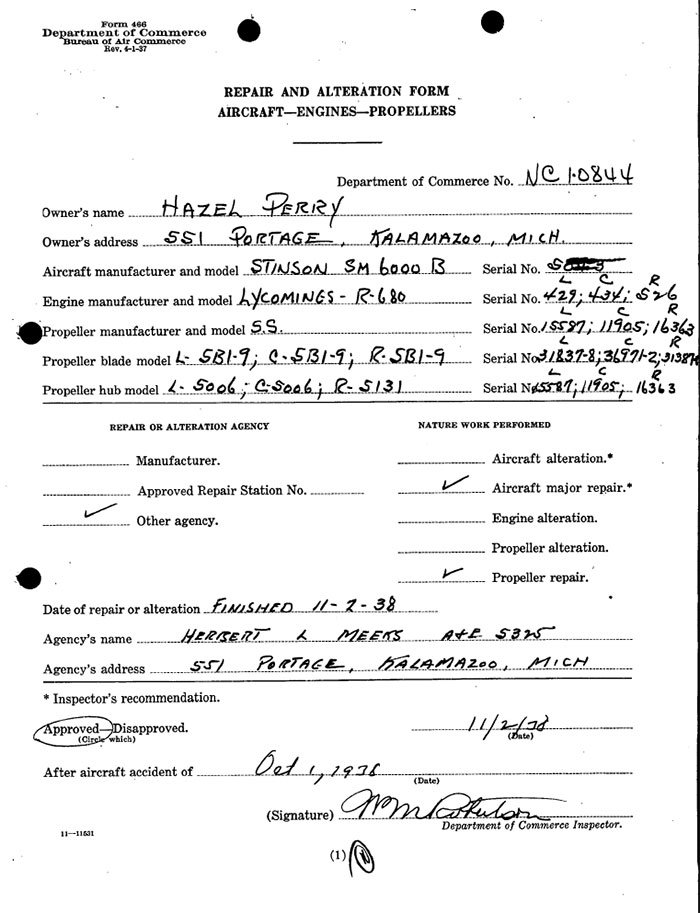 Form 466
Department of Commerce
Bureau of Air Commerce
Rev. 4-1-37
REPAIR AND ALTERATION FORM
AIRCRAFT—ENGINES—PROPELLERS
Department of Commerce No. NC 10844
Owner's name HAZEL PERRY
Owner's address 551 PORTAGE, KALAMAZOO, MICH.
Aircraft manufacturer and model STINSON SM 6000 B Serial No.
L C R
Engine manufacturer and model LYCOMINGS - R-680 Serial No. 429; 434; 526
L C R
Propeller manufacturer and model S.S. Serial No. 15587; 11905; 16363
L C R
Propeller blade model L- 5B1-9; C-5B1-9; R-5B1-9 Serial No 31837-8; 36971-2;
L C R
Propeller hub model L- 5006; C-5006; R- 5131 Serial No 15587; 11905; 16363
REPAIR OR ALTERATION AGENCY NATURE WORK PERFORMED
Manufacturer. Aircraft alteration.*
Approved Repair Station No. ✓ Aircraft major repair.*
✓ Other agency. Engine alteration.
Propeller alteration.
✓ Propeller repair.
Date of repair or alteration FINISHED 11-2-38
Agency's name HERBERT L MEEKS A+E 5325
Agency's address 551 PORTAGE, KALAMAZOO, MICH
* Inspector's recommendation.
Approved—Disapproved. 11/2/38
(Circle which) (Date)
After aircraft accident of Oct 1, 1938
(Date)
(Signature)
Department of Commerce Inspector.
11—11531
(1)